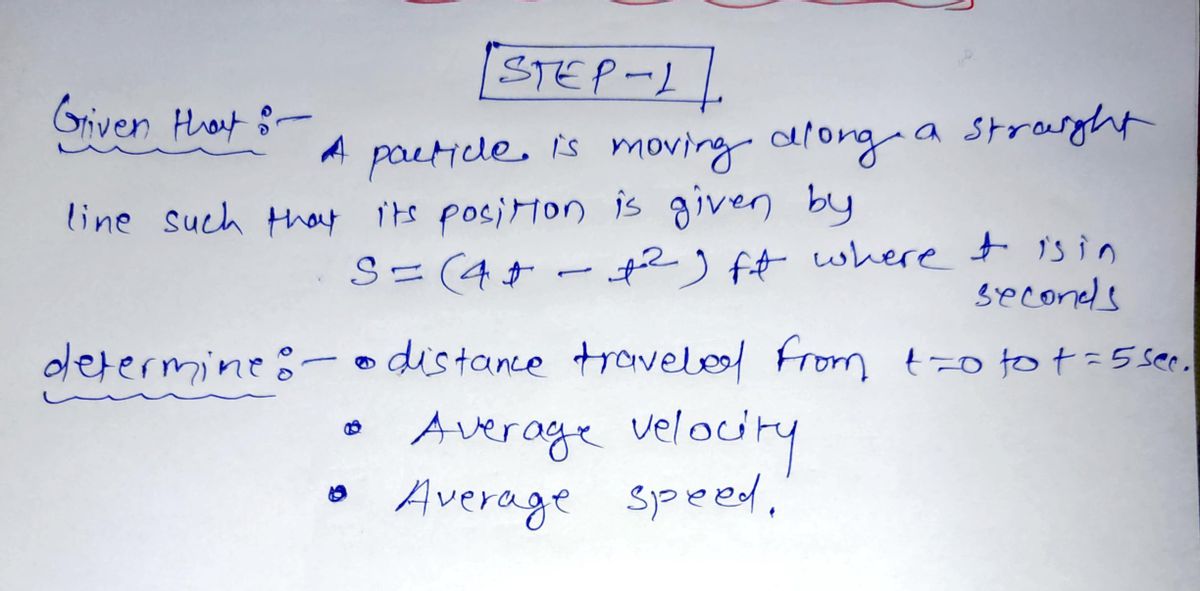 STEP-1
Given that :-
A particle is moving along a straight
line such that its position is given by
S = (4t - t²) ft where t is in
seconds
determine :- • distance traveled from t=0 to t=5 sec.
• Average velocity
• Average speed.